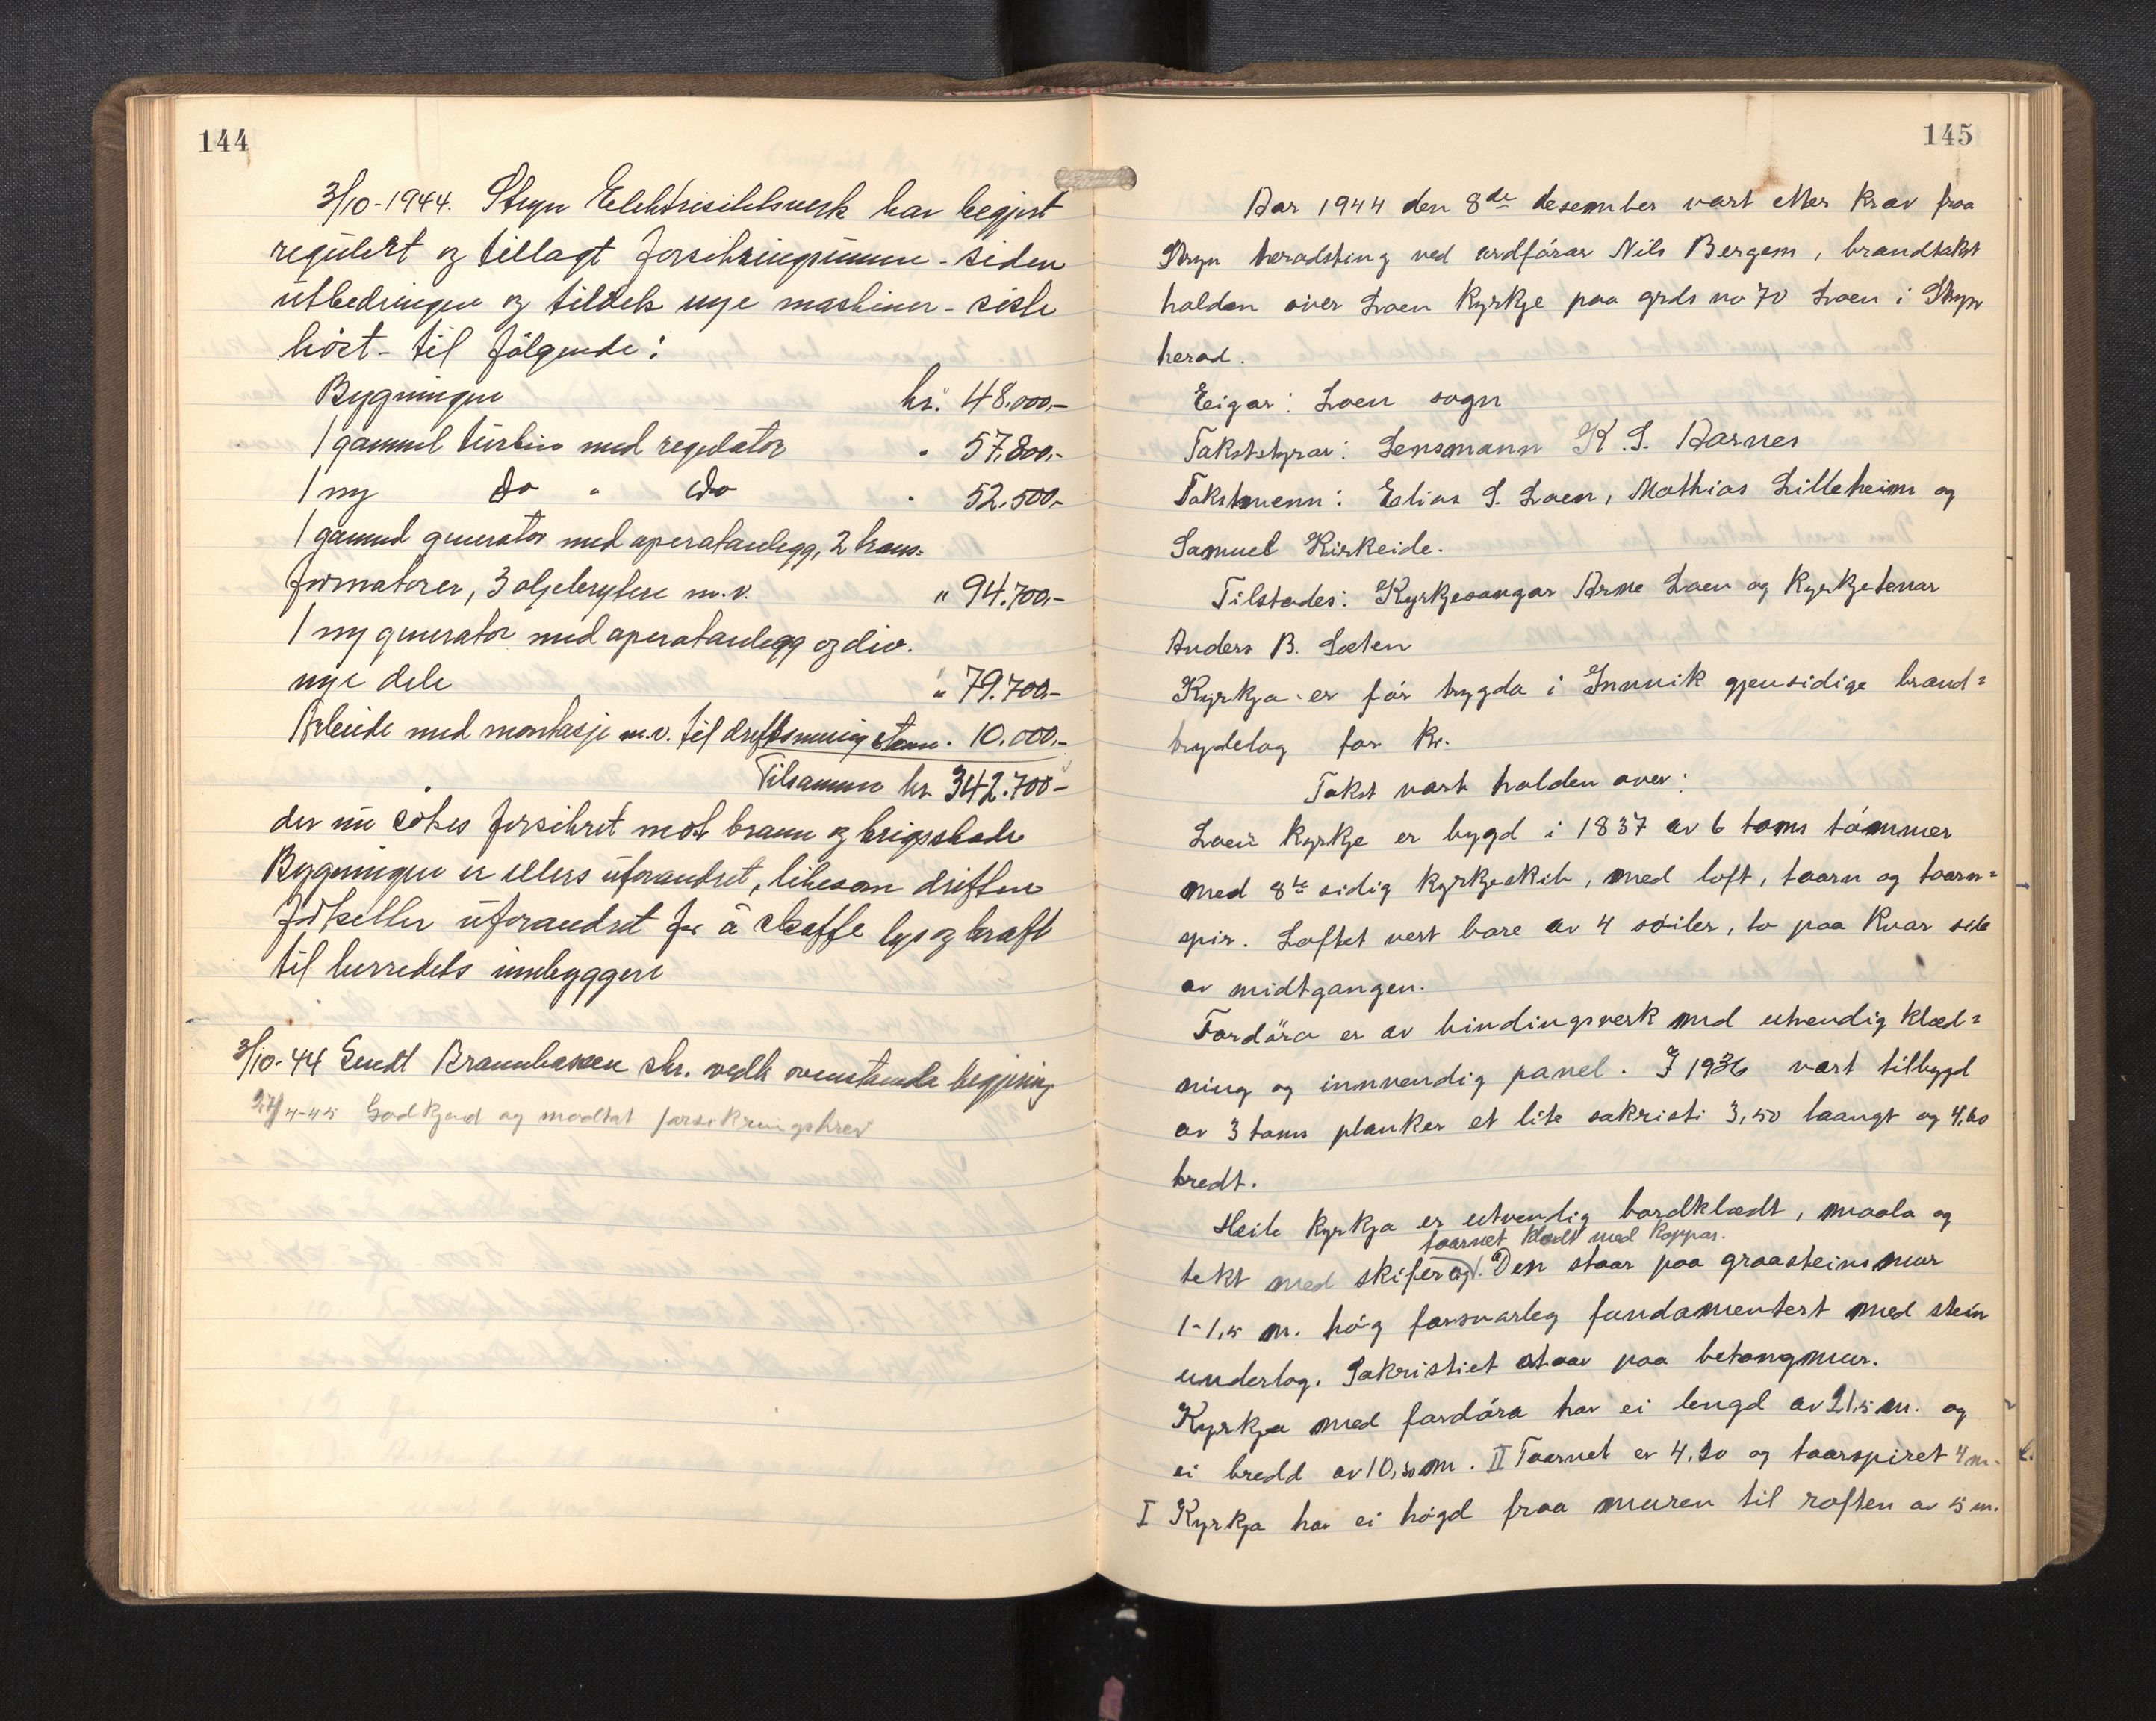 144
3/10-1944. Stryn Elektrisitetsverk har begjert
regulert og tillagt forsikringssummen - siden
utbedringen og tildels nye maskiner - siste
høst - til følgende:
Bygningen kr. 48.000,-
1 gammel turbin med regulator " 57.800,-
1 ny do " do " 52.500,-
1 gammel generator med aperatanlegg, 2 trans-
formatorer, 3 oljebrytere m.v. " 94.700,-
1 ny generator med aperatanlegg og div.
nye dele " 79.700,-
Arbeide med montasje m.v. til driftsmessig stann. 10.000,-
Tilsammen kr. 342.700-
der nu søkes forsikret mot brann og krigsskade
Bygningen er ellers uforandret, likesom driften
fortsetter uforandret for å skaffe lys og kraft
til herredets innbyggere
3/10-44 Sendt Brannkassen skr. vedk ovenstaande begjering
27/4-45 Godkjend og modtat forsikringsbrev
145
Aar 1944 den 8de desember vart etter krav fraa
Stryn heradsting ved ordførar Nils Bergem, brandtakst
halden over Loen Kyrkje paa grds no 70 Loen i Stryn
herad.
Eigar: Loen sogn
Takststyrar: Lensmann K. S. Aarnes
Takstmenn: Elias S. Loen, Mathias Lilleheim og
Samuel Kirkeide.
Tilstades: Kyrkjesongar Arne Loen og Kyrkjetenar
Anders B. Sæten
Kyrkja er før trygda i Innvik gjensidige brand=
trydelag for kr.
Takst vart halden over:
Loen Kyrkje er bygd i 1837 av 6 toms tømmer
med 8te sidig kyrkjeskib, med loft, taarn og taarn=
spir. Loftet vert bare av 4 søiler, to paa kvar side
av midtgangen.
Fordøra er av bindingsverk med utvendig klæd=
ning og innvendig panel. I 1936 vart tilbygd
av 3 toms planker et lite sakristi 3,50 laangt og 4,60
bredt.
Heile kyrkja er utvendig bordklædt, maala og
taarnet klædt med koppar.
tekt med skifer og. Den staar paa graasteinsmur
1-1,5 m. høg forsvarleg fundamentert med stein
underlag. Sakristiet staar paa betongmur.
Kyrkja med fordøra har ei lengd av 21,5 m. og
ei bredd av 10,30 m. II Taarnet er 4,20 og taarspiret 4 m.
I Kyrkja har ei høgd fraa muren til roften av 5 m.